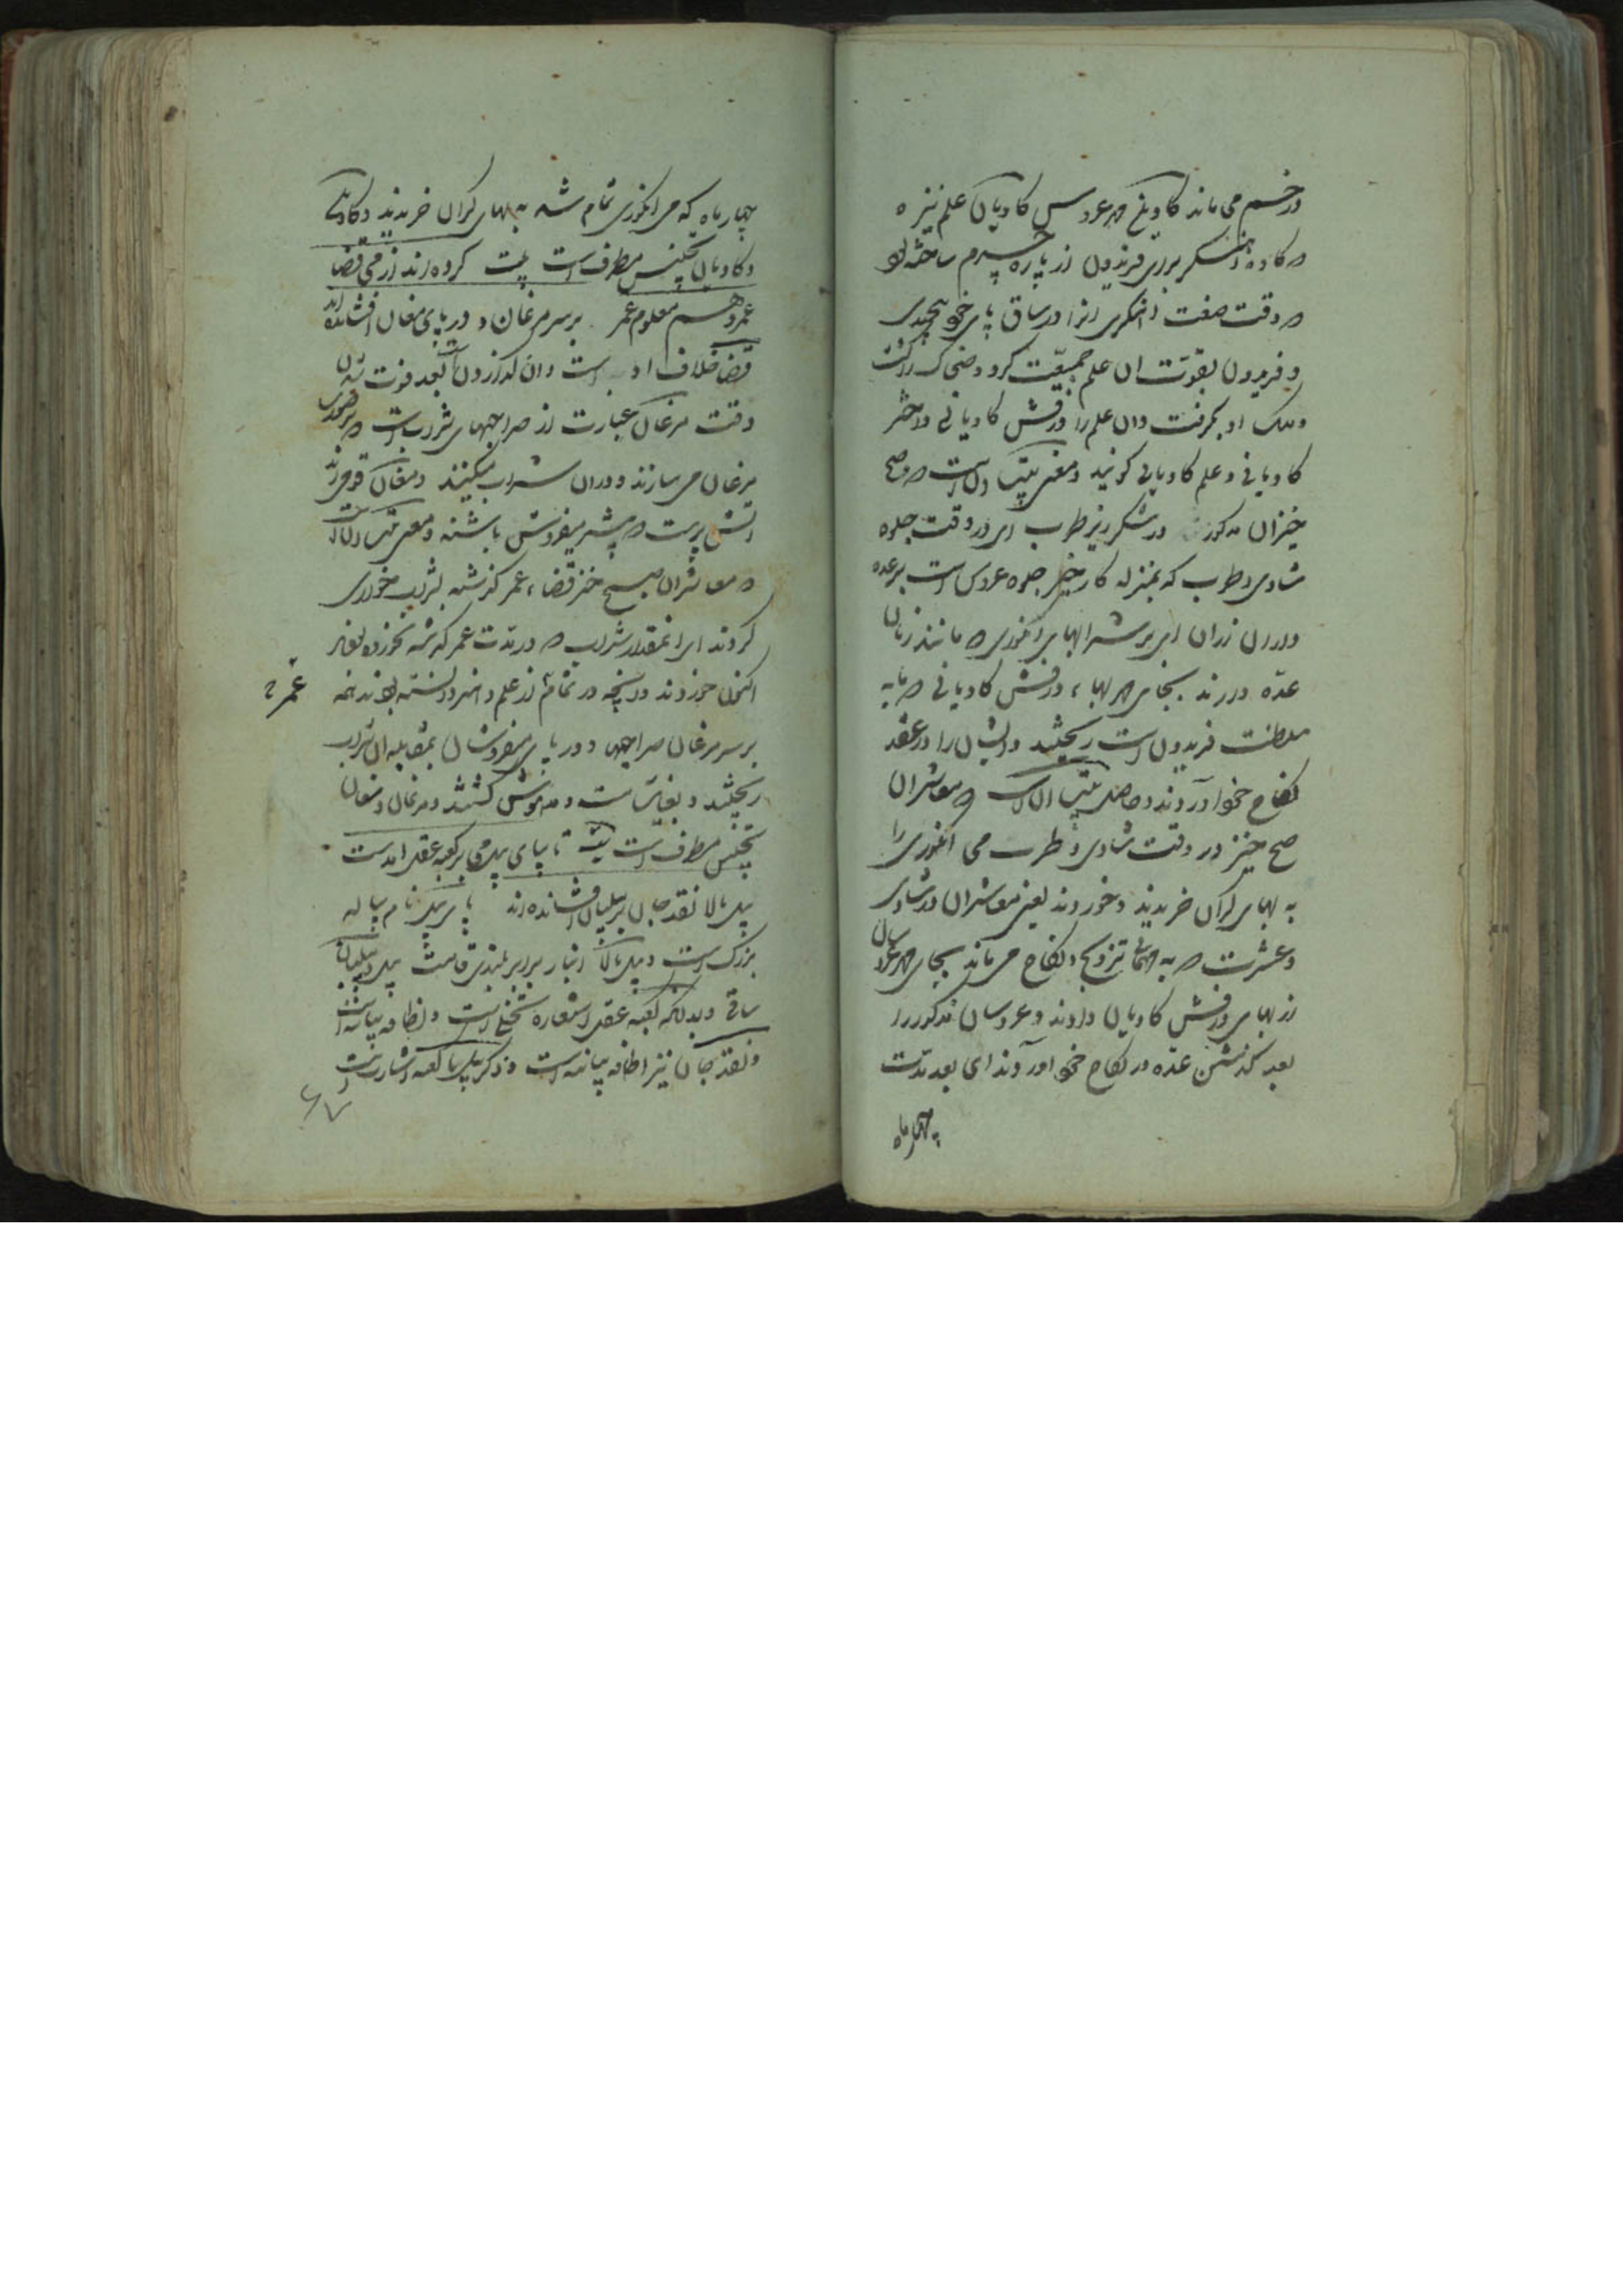 در خم می ماند کاوین مهر عروس کاویان علم نیزه
که کاوه آهنگر برای فریدون از پاره چرم ساخته بود
که وقت صنعت آهنگری انرا در ساق پای خود پیچیدی
و فریدون بقوت ان علم جمعیت کرد و ضحاک را کشت
و ملک او بگرفت و ان علم را درفش کاویانی و اختر
کاویانی و علم کاویانی گویند و معنی بیت ان است که صبح
خیزان مذکور در شکر ریز طرب ای در وقت جلوه
شادی و طرب که بمنزله کار خیر جلوه عروس است بر عده
داران رزان ای بر شرابهای انگوری که مانند زنان
عده دارند بجای مهر بها درفش کاویانی که مایه
سلطنت فریدون است ریختند و ایشان را در عقد
نکاح خود آوردند و حاصل بیت ان است که معاشران
صبح خیز در وقت شادی و طرب می انگوری را
به بهای گران خریدند و خوردند یعنی معاشران در شادی
و عشرت که به تزویج و نکاح می ماند بجای مهر عروسان
رز بهای درفش کاویان دادند و عروسان مذکور را
بعد گذشتن عده در نکاح خود آوردند ای بعد مدت
چهار ماه
چهار ماه که می انگوری تمام شد به بهای گران خریدند و کاوین
و کاویان تجنیس مطرف است بیت کرده اند از می قضا
عمر و هم معلوم عمر بر سر مرغان و در پای مغان افشانده اند
قضا خلاف ادا است و ان گذاردن بعد فوت شدن
وقت مرغان عبارت از صراحیهای شراب است که بر صورت
مرغان می سازند و در ان شراب میکنند و مغان قومی اند
آتش پرست که بیشتر میفروش باشند و معنی بیت ان است
که معاشران صبح خیز قضاء عمر گذشته بشراب خوری
کردند ای انمقدار شراب که در مدت عمر گذشته نخورده بودند
اکنون خوردند و انچه در تمام از علم و هنر دانسته بودند همه
عمر
بر سر مرغان صراحیها و در پای میفروشان بمقابله ان شراب
ریختند و بغایت مست و مدهوش گشتند و مرغان و مغان
تجنیس مطرف است بیت تا بپای پیل می بر کعبه عقل امدست
پیل بالا نقد جان بر پیلبان افشانده اند پای پیل نام پیاله
بزرگ است و پیل بالا انبار برابر بلندی قامت پیل و پیلبان
ساقی و بدانکه کعبه عقل استعاره است و اضافه بیانیه است
و نقد جان نیز اضافه بیانیه است و ذکر پیل با کعبه اشارت است